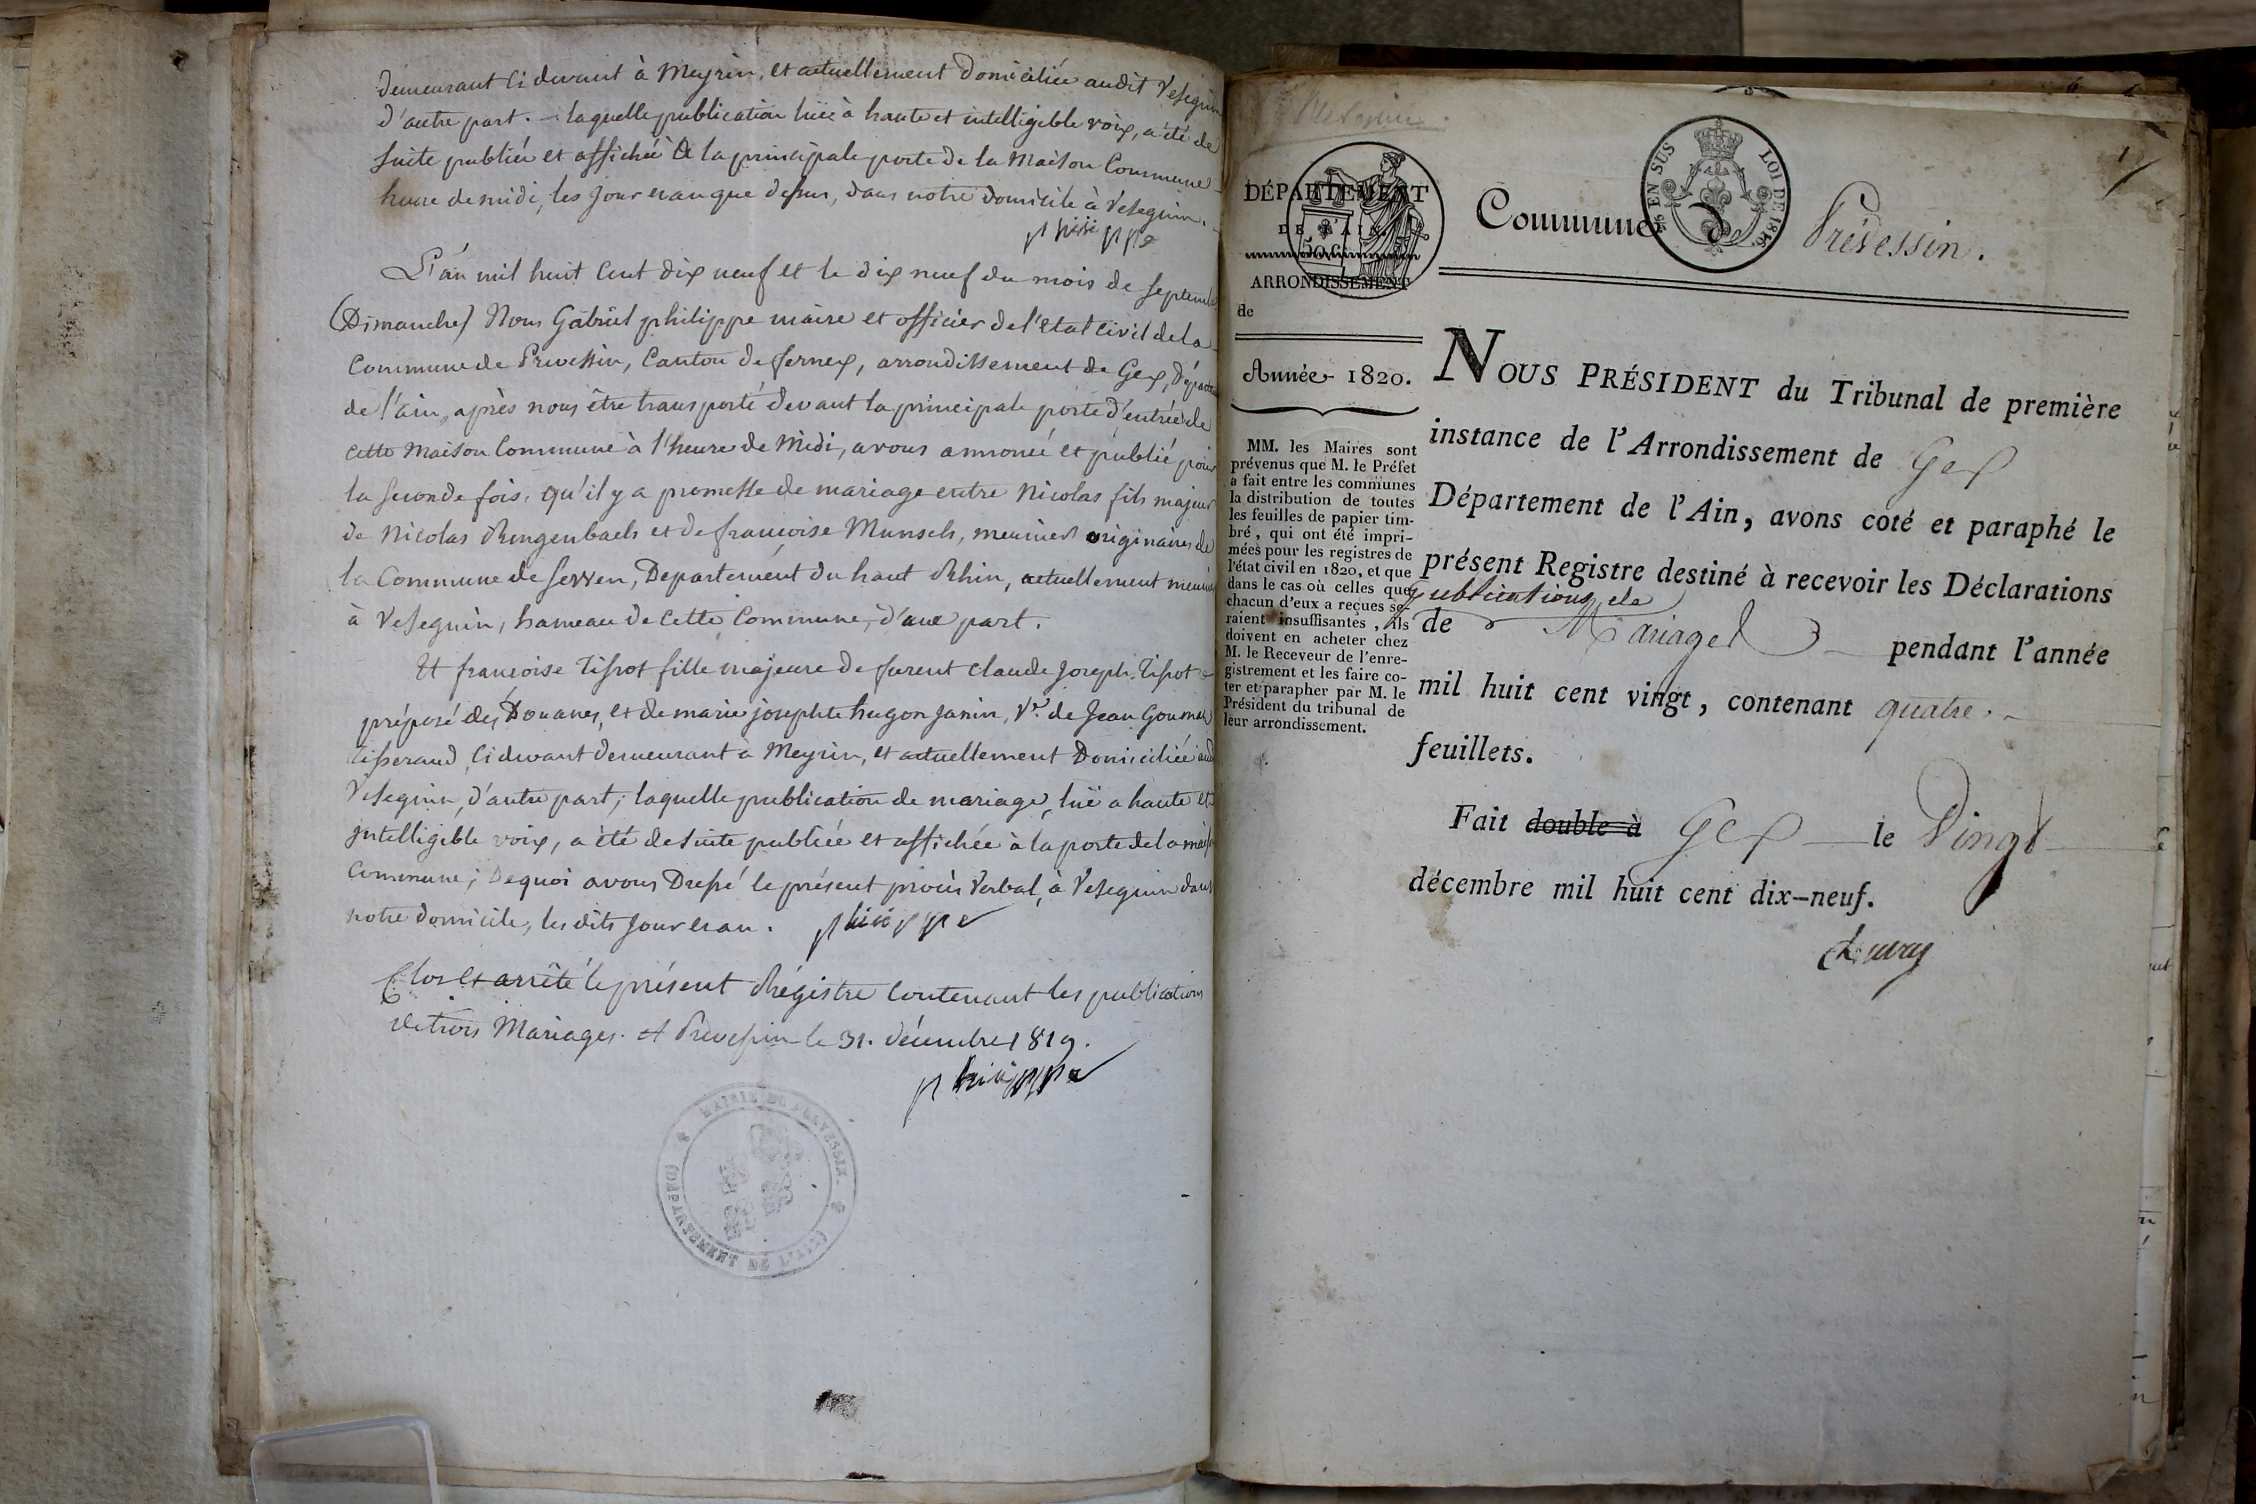 demeurant ci devant à Meyrin, et actuellement domiciliée audit Vésegnin
d'autre part. – laquelle publication lüe à haute et intelligible voix, a été de
suite publiée et affichée à la principale porte de la Maison Commune
heure de midi, les jour et an que dessus, dans notre domicile à Vesegnin.
philippe
L'an mil huit Cent dix neuf et le dix neuf du mois de Septembre
(Dimanche) Nous Gabriel philippe maire et officier de l'état civil de la
Commune de Prevessin, Canton de ferney, arrondissement de Gex, Départ
de l'ain, après nous être transporté devant la principale porte d'entrée de
cette Maison Commune à l'heure de Midi, avons annoncé et publié pour
la seconde fois, qu'il y a promesse de mariage entre Nicolas fils majeur
de Nicolas Ringenbach et de françoise Munsch, meunier originaires de
la Commune de Sewen, Departement du haut Rhin, actuellement meunier
à Vesegnin, hameau de cette Commune, d'une part.
Et françoise Tissot fille majeure de furent Claude Joseph Tissot
préposé des Douanes, et de marie josephte hugon Janin, Ve. de Jean Gourmen
tisserand, ci devant demeurant à Meyrin, et actuellement Domiciliée aud
Vesegnin, d'autre part; laquelle publication de mariage, lüe a haute et
intelligible voix, a été de suite publiée et affichée à la porte de la mais
Commune; Dequoi avons Dressé le présent procès Verbal, à Vesegnin dans
notre domicile, les dits jour et an. philippe
Clos et arrêté le présent Régistre Contenant les publications
de trois Mariages. A Prévessin le 31. décembre 1819.
philippe
MAIRIE DE PREVESSIN
(DÉPARTEMENT DE L'AIN)
1
DÉPARTEMENT
DE L'AIN.
50 c.
ARRONDISSEMENT
de
EN SUS
LOI DE 1816.
Commune de Prévessin.
Année 1820.
MM. les Maires sont
prévenus que M. le Préfet
a fait entre les communes
la distribution de toutes
les feuilles de papier tim-
bré, qui ont été impri-
mées pour les registres de
l'état civil en 1820, et que
dans le cas où celles que
chacun d'eux a reçues se-
raient insuffisantes, ils
doivent en acheter chez
M. le Receveur de l'enre-
gistrement et les faire co-
ter et parapher par M. le
Président du tribunal de
leur arrondissement.
NOUS PRÉSIDENT du Tribunal de première
instance de l'Arrondissement de Gex
Département de l'Ain, avons coté et paraphé le
présent Registre destiné à recevoir les Déclarations
publications de
de Mariages pendant l'année
mil huit cent vingt, contenant quatre
feuillets.
Fait double à Gex le Vingt
décembre mil huit cent dix-neuf.